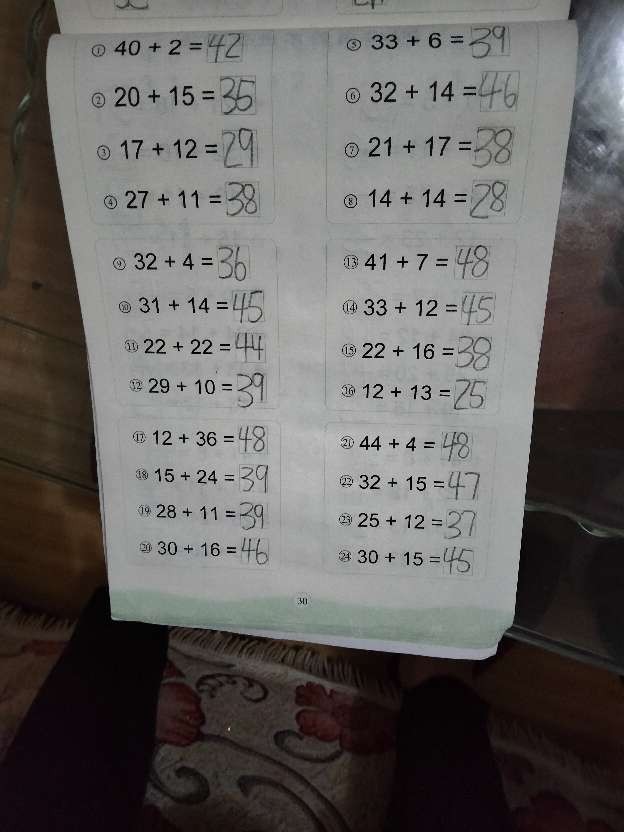 ① 40 + 2 = 42
② 20 + 15 = 35
③ 17 + 12 = 29
④ 27 + 11 = 38
⑤ 33 + 6 = 39
⑥ 32 + 14 = 46
⑦ 21 + 17 = 38
⑧ 14 + 14 = 28
⑨ 32 + 4 = 36
⑩ 31 + 14 = 45
⑪ 22 + 22 = 44
⑫ 29 + 10 = 39
⑬ 41 + 7 = 48
⑭ 33 + 12 = 45
⑮ 22 + 16 = 38
⑯ 12 + 13 = 25
⑰ 12 + 36 = 48
⑱ 15 + 24 = 39
⑲ 28 + 11 = 39
⑳ 30 + 16 = 46
㉑ 44 + 4 = 48
㉒ 32 + 15 = 47
㉓ 25 + 12 = 37
㉔ 30 + 15 = 45
30